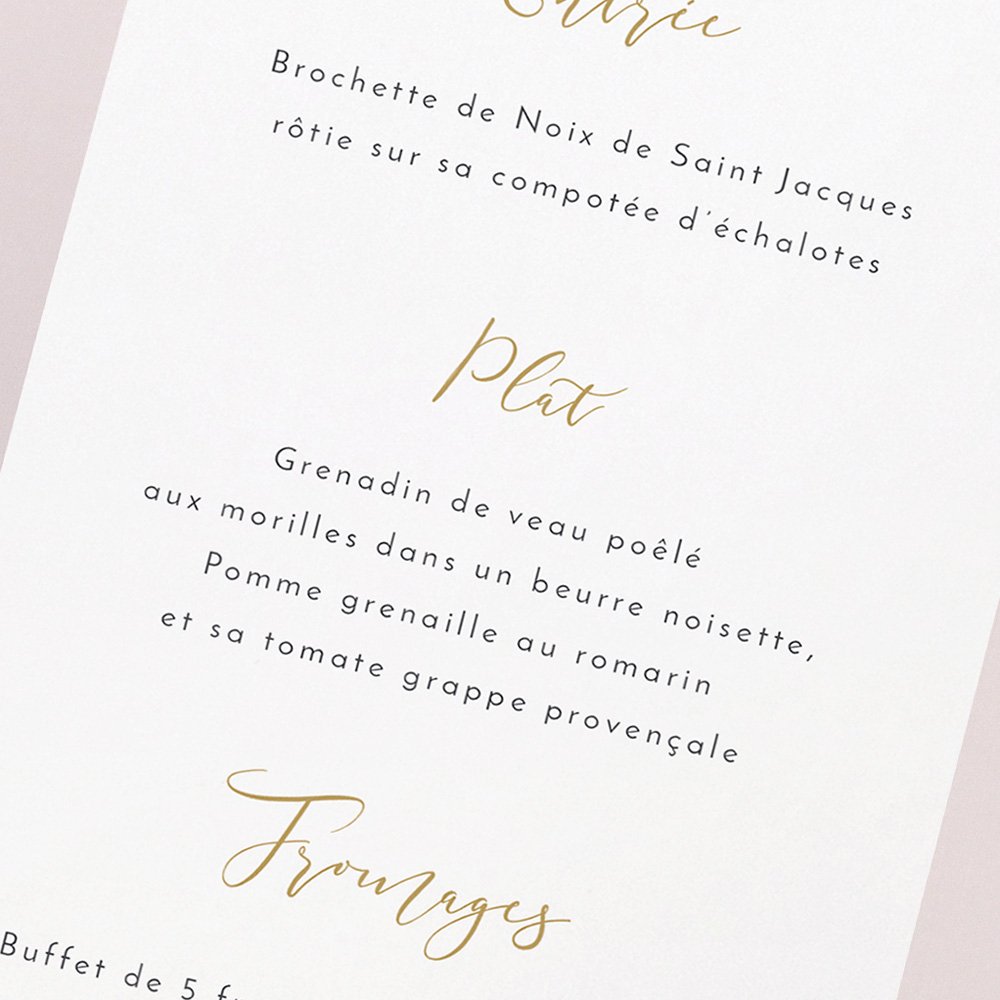 Entrée
Brochette de Noix de Saint Jacques
rôtie sur sa compotée d'échalotes
Plat
Grenadin de veau poêlé
aux morilles dans un beurre noisette,
Pomme grenaille au romarin
et sa tomate grappe provençale
Fromages
Buffet de 5